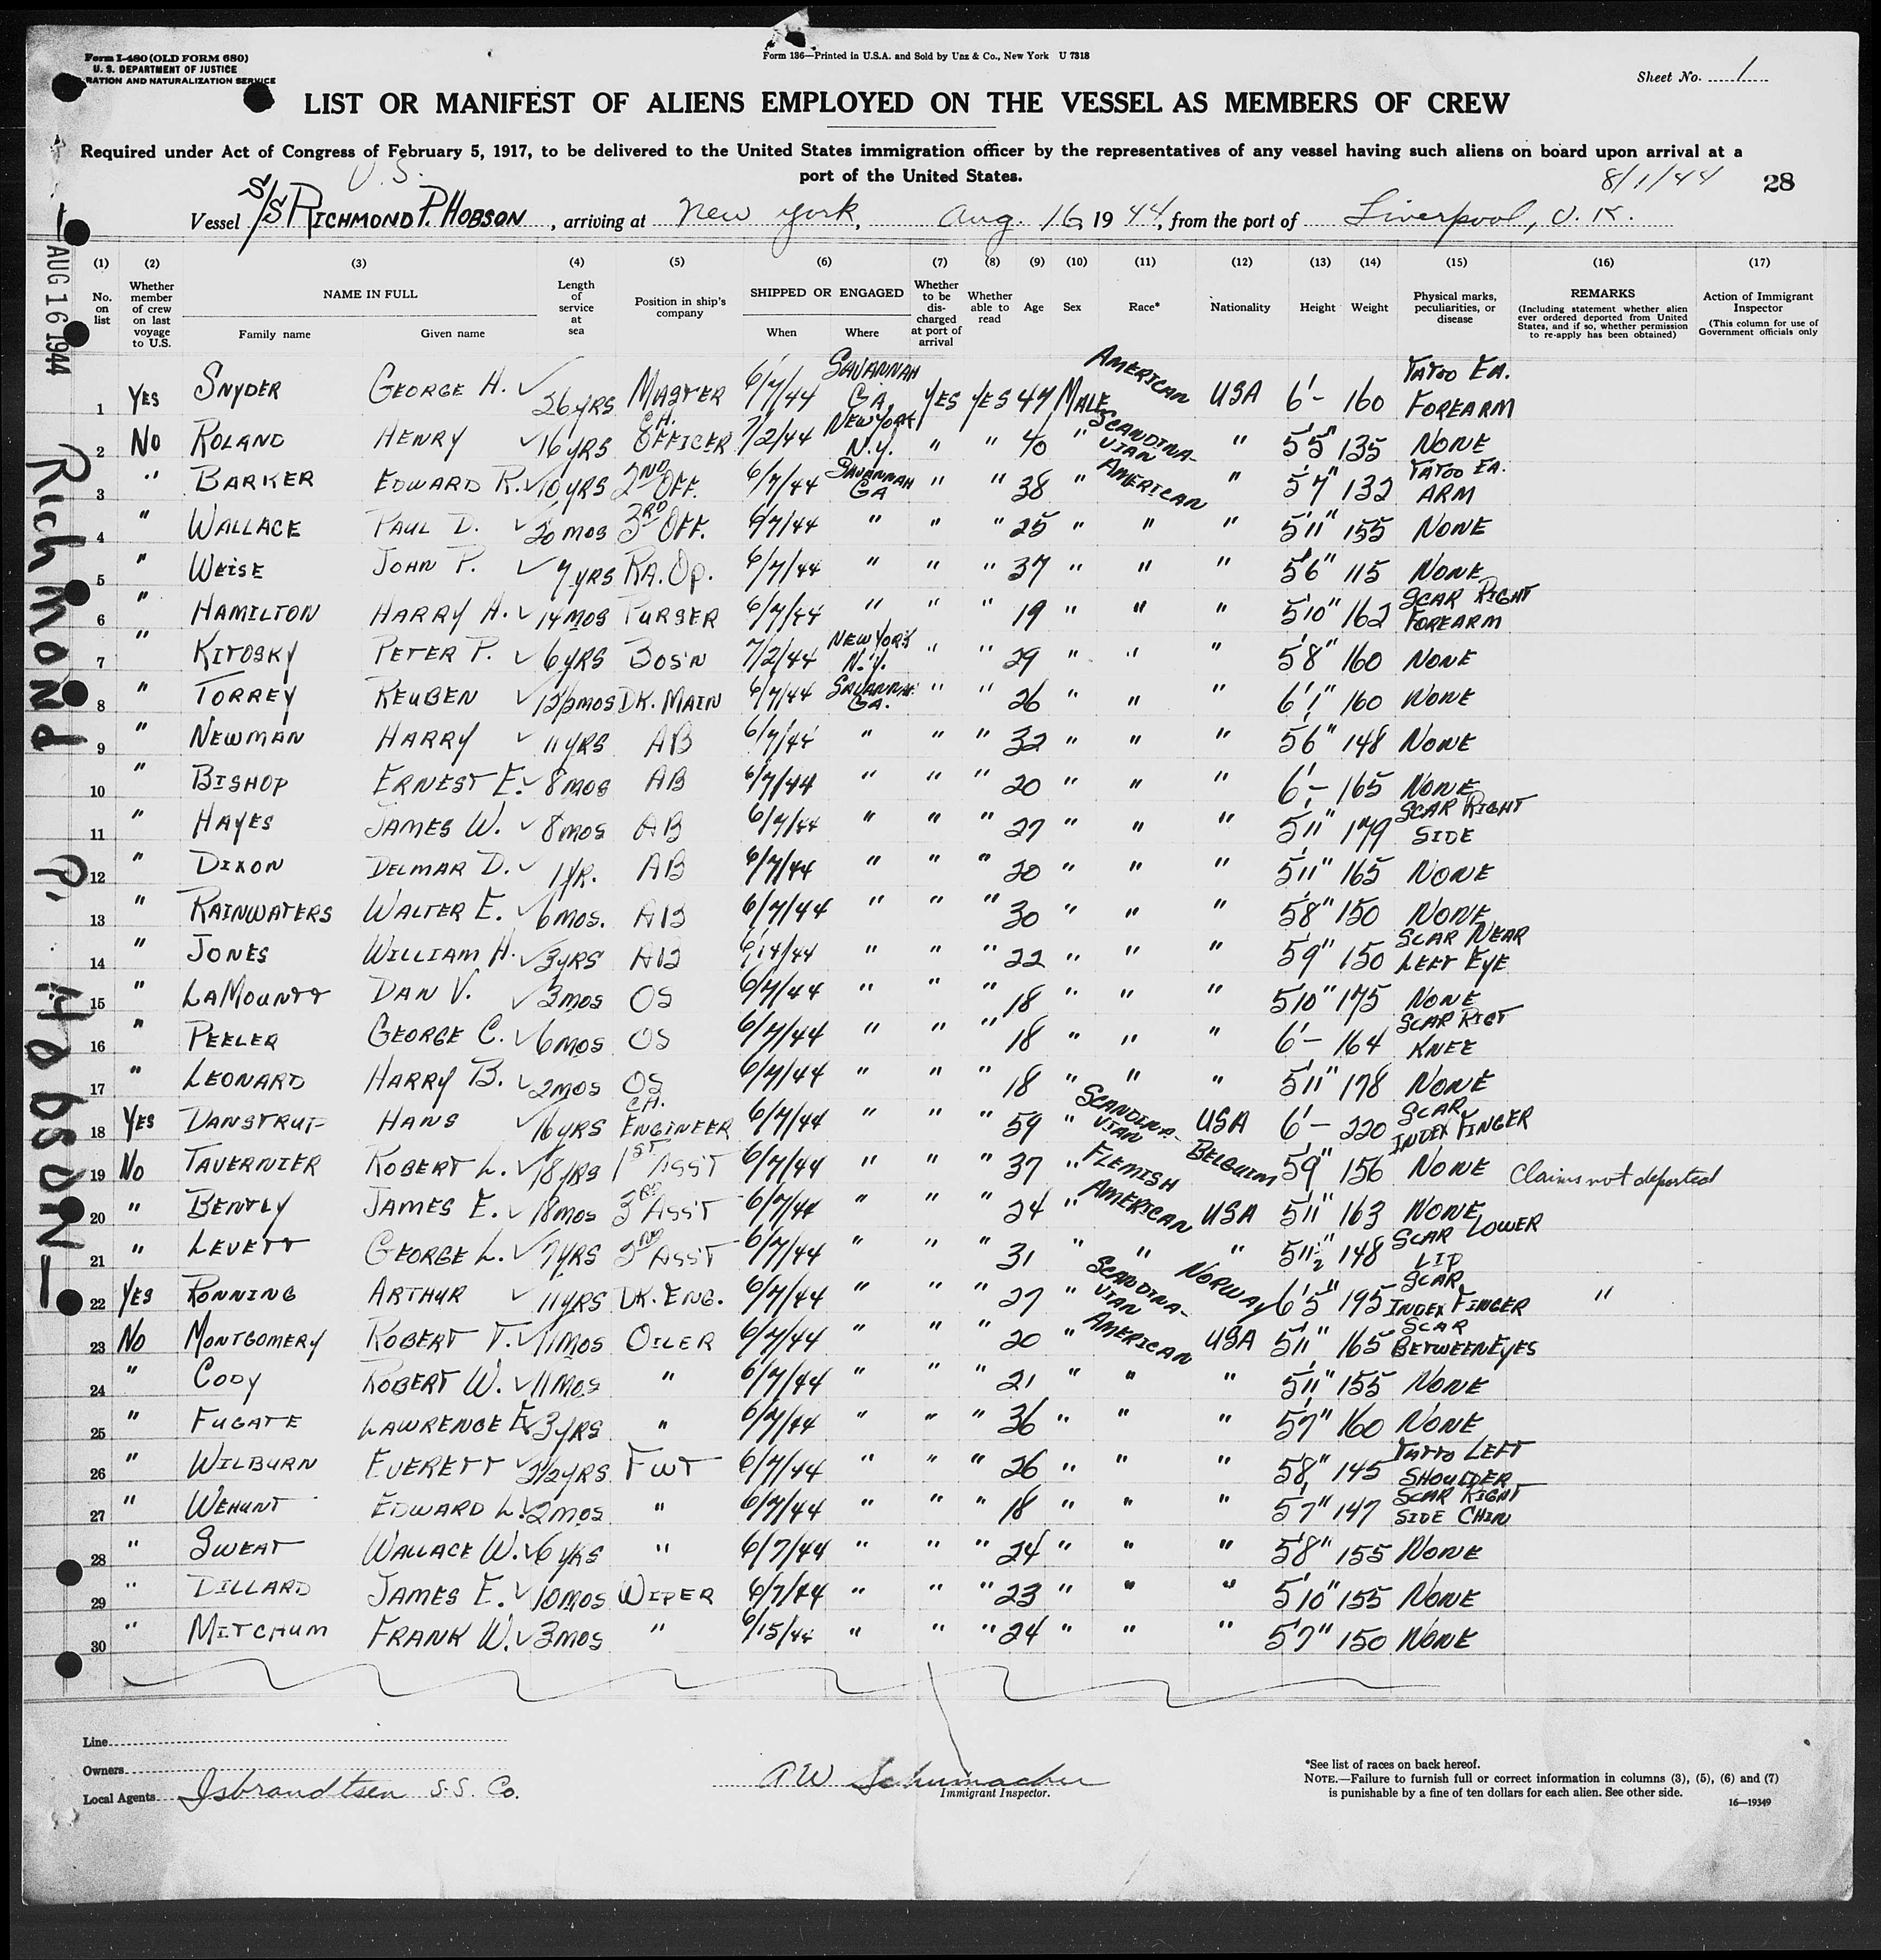 Form I-480 (OLD FORM 680)
U. S. DEPARTMENT OF JUSTICE
RATION AND NATURALIZATION SERVICE
Form 136—Printed in U.S.A. and Sold by Unz & Co., New York U 7318
Sheet No. 1
LIST OR MANIFEST OF ALIENS EMPLOYED ON THE VESSEL AS MEMBERS OF CREW
Required under Act of Congress of February 5, 1917, to be delivered to the United States immigration officer by the representatives of any vessel having such aliens on board upon arrival at a
port of the United States.
U.S.
8/1/44 28
Vessel S/S RICHMOND P. HOBSON, arriving at New York, Aug. 16 1944, from the port of Liverpool, U.K.
AUG 16 1944
Richmond P. Hobson
(1) (2) (3) (4) (5) (6) (7) (8) (9) (10) (11) (12) (13) (14) (15) (16) (17)
No. on list
Whether member of crew on last voyage to U.S.
NAME IN FULL
Family name Given name
Length of service at sea
Position in ship's company
SHIPPED OR ENGAGED
When Where
Whether to be discharged at port of arrival
Whether able to read
Age
Sex
Race*
Nationality
Height
Weight
Physical marks, peculiarities, or disease
REMARKS
(Including statement whether alien ever ordered deported from United States, and if so, whether permission to re-apply has been obtained)
Action of Immigrant Inspector
(This column for use of Government officials only
1 YES SNYDER GEORGE H. ✓ 26 YRS MASTER 6/7/44 SAVANNAH GA. YES YES 47 MALE AMERICAN USA 6'- 160 TATOO EA. FOREARM
2 NO ROLAND HENRY ✓ 16 YRS CH. OFFICER 7/2/44 NEW YORK N.Y. " " 40 " SCANDINA-VIAN " 5'5" 135 NONE
3 " BARKER EDWARD R. ✓ 10 YRS 2ND OFF. 6/7/44 SAVANNAH GA " " 38 AMERICAN " 5'7" 132 TATOO EA. ARM
4 " WALLACE PAUL D. ✓ 20 MOS 3RD OFF. 6/7/44 " " " 25 " " " 5'11" 155 NONE
5 " WEISE JOHN P. ✓ 7 YRS RA. OP. 6/7/44 " " " 37 " " " 5'6" 115 NONE
6 " HAMILTON HARRY H. ✓ 14 MOS PURSER 6/7/44 " " " 19 " " " 5'10" 162 SCAR RIGHT FOREARM
7 " KITOSKY PETER P. ✓ 6 YRS BOS'N 7/2/44 NEW YORK N.Y. " " 29 " " " 5'8" 160 NONE
8 " TORREY REUBEN ✓ 12½ MOS DK. MAIN 6/7/44 SAVANNAH GA. " " 26 " " " 6'1" 160 NONE
9 " NEWMAN HARRY ✓ 11 YRS AB 6/7/44 " " " 32 " " " 5'6" 148 NONE
10 " BISHOP ERNEST E. ✓ 8 MOS AB 6/7/44 " " " 20 " " " 6'- 165 NONE
11 " HAYES JAMES W. ✓ 8 MOS AB 6/7/44 " " " 27 " " " 5'11" 179 SCAR RIGHT SIDE
12 " DIXON DELMAR D. ✓ 1 YR. AB 6/7/44 " " " 20 " " " 5'11" 165 NONE
13 " RAINWATERS WALTER E. ✓ 6 MOS. AB 6/7/44 " " " 30 " " " 5'8" 150 NONE
14 " JONES WILLIAM H. ✓ 3 YRS AB 6/14/44 " " " 22 " " " 5'9" 150 SCAR NEAR LEFT EYE
15 " LAMOUNTT DAN V. ✓ 3 MOS OS 6/7/44 " " " 18 " " " 5'10" 175 NONE
16 " PEELER GEORGE C. ✓ 6 MOS OS 6/7/44 " " " 18 " " " 6'- 164 SCAR RIGT KNEE
17 " LEONARD HARRY B. ✓ 2 MOS OS 6/7/44 " " " 18 " " " 5'11" 178 NONE
18 YES DANSTRUP HANS ✓ 16 YRS CH. ENGINEER 6/7/44 " " " 59 " SCANDINA-VIAN USA 6'- 220 SCAR INDEX FINGER
19 NO TAVERNIER ROBERT L. ✓ 18 YRS 1ST ASST 6/7/44 " " " 37 " FLEMISH BELGUIM 5'9" 156 NONE Claims not deported
20 " BENTLY JAMES E. ✓ 18 MOS 3RD ASS'T 6/7/44 " " " 24 " AMERICAN USA 5'11" 163 NONE
21 " LEVETT GEORGE L. ✓ 7 YRS 2ND ASS'T 6/7/44 " " " 31 " " " 5'11½" 148 SCAR LOWER LIP
22 YES RONNING ARTHUR ✓ 11 YRS DK. ENG. 6/7/44 " " " 27 " SCANDINA-VIAN NORWAY 6'5" 195 SCAR INDEX FINGER "
23 NO MONTGOMERY ROBERT T. ✓ 11 MOS OILER 6/7/44 " " " 20 " AMERICAN USA 5'11" 165 SCAR BETWEEN EYES
24 " CODY ROBERT W. ✓ 11 MOS " 6/7/44 " " " 21 " " " 5'11" 155 NONE
25 " FUGATE LAWRENCE E. ✓ 3 YRS " 6/7/44 " " " 36 " " " 5'7" 160 NONE
26 " WILBURN EVERETT ✓ 2½ YRS. FWT 6/7/44 " " " 26 " " " 5'8" 145 TATTO LEFT SHOULDER
27 " WEHUNT EDWARD L. ✓ 2 MOS " 6/7/44 " " " 18 " " " 5'7" 147 SCAR RIGHT SIDE CHIN
28 " SWEAT WALLACE W. ✓ 6 YRS " 6/7/44 " " " 24 " " " 5'8" 155 NONE
29 " DILLARD JAMES E. ✓ 10 MOS WIPER 6/7/44 " " " 23 " " " 5'10" 155 NONE
30 " MITCHUM FRANK W. ✓ 3 MOS " 6/15/44 " " " 24 " " " 5'7" 150 NONE
Line
Owners
Local Agents Isbrandtsen S.S. Co.
A W Schumacher
Immigrant Inspector.
*See list of races on back hereof.
NOTE.—Failure to furnish full or correct information in columns (3), (5), (6) and (7)
is punishable by a fine of ten dollars for each alien. See other side.
16—19349